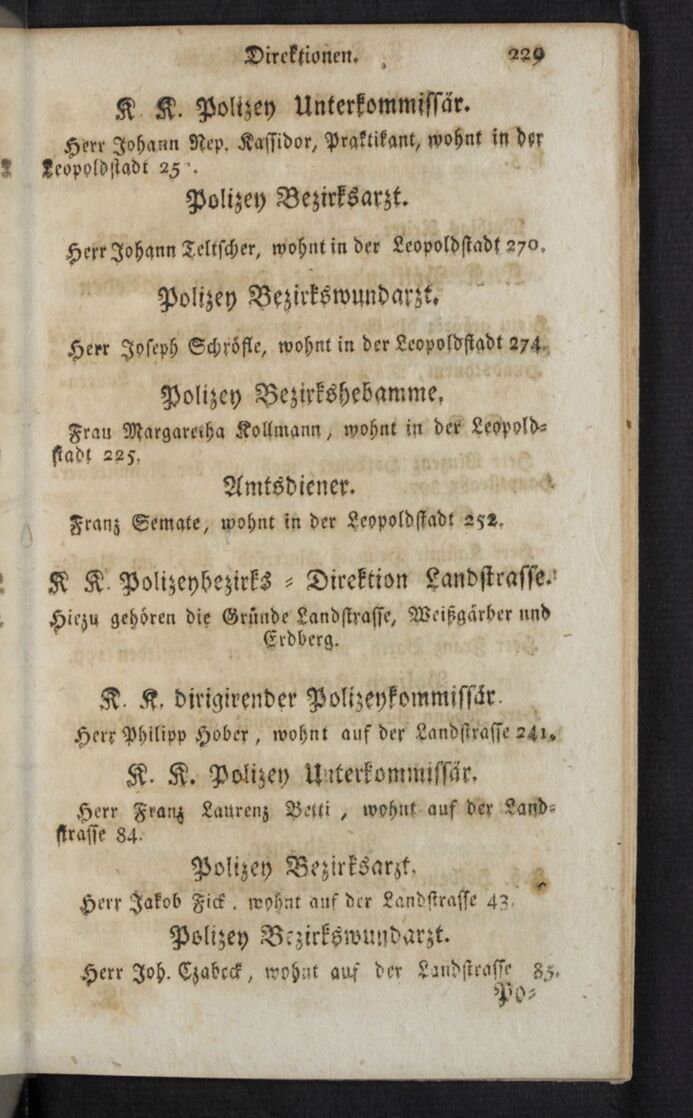 Direktionen. 229
K. K. Polizey Unterkommissär.
Herr Johann Nep. Kassidor, Praktikant, wohnt in der
Leopoldstadt 25
Polizey Bezirksarzt.
Herr Johann Teltscher, wohnt in der Leopoldstadt 270.
Polizey Bezirkswundarzt.
Herr Joseph Schröfle, wohnt in der Leopoldstadt 274.
Polizey Bezirkshebamme.
Frau Margaretha Kollmann, wohnt in der Leopold-
stadt 225.
Amtsdiener.
Franz Semate, wohnt in der Leopoldstadt 252.
K K. Polizeybezirks - Direktion Landstrasse.
Hiezu gehören die Gründe Landstrasse, Weißgärber und
Erdberg.
K. K. dirigirender Polizeykommissär.
Herr Philipp Hober, wohnt auf der Landstrasse 241.
K. K. Polizey Unterkommissär.
Herr Franz Laurenz Betti, wohnt auf der Land-
strasse 84.
Polizey Bezirksarzt.
Herr Jakob Fick, wohnt auf der Landstrasse 43.
Polizey Bezirkswundarzt.
Herr Joh. Czabeck, wohnt auf der Landstrasse 85.
Po-